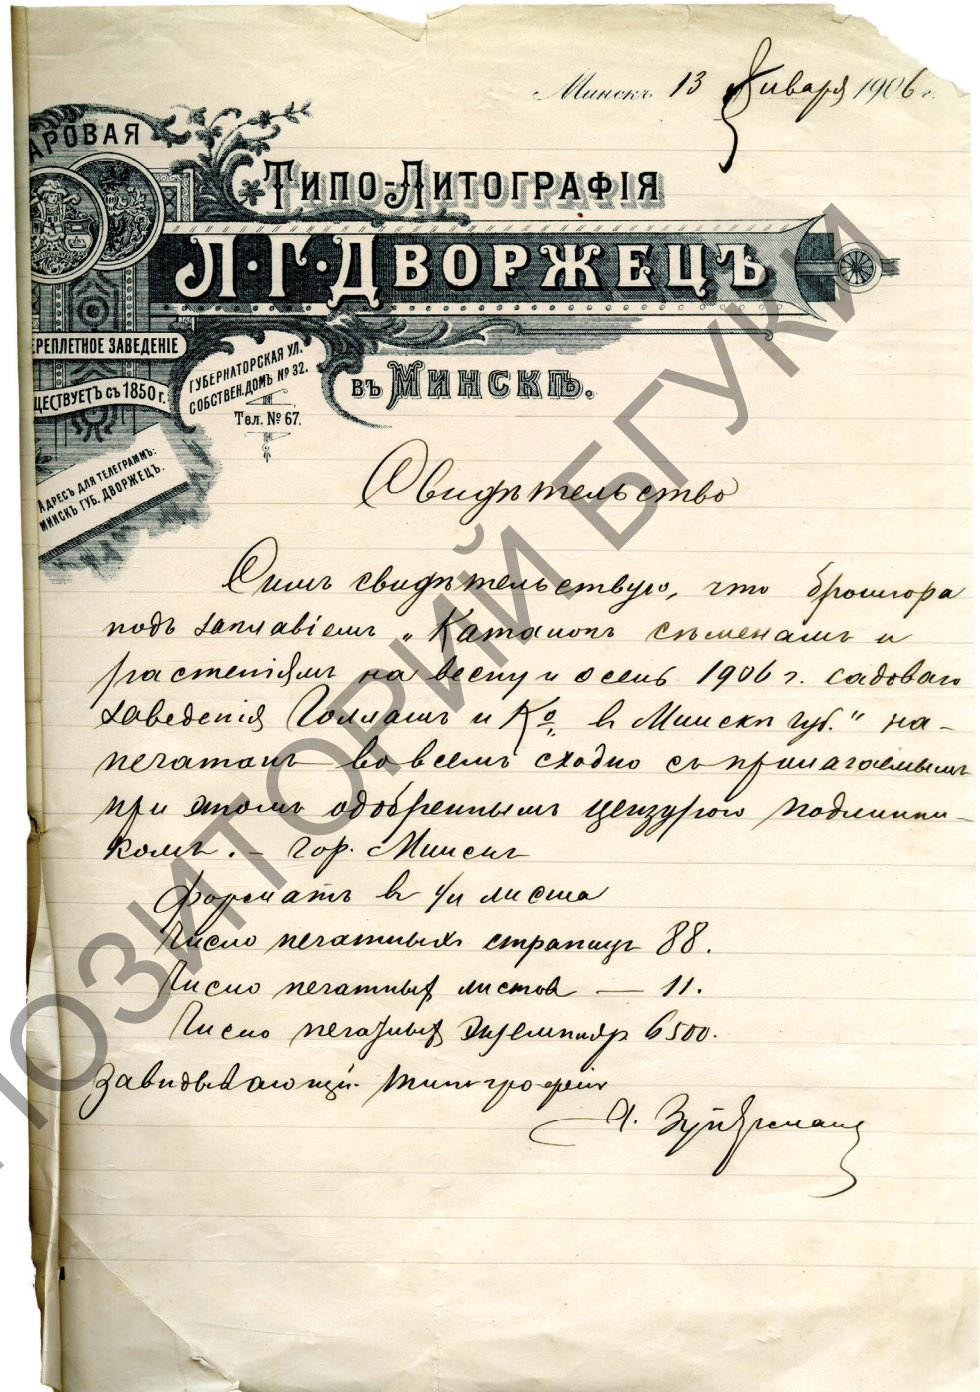 Минскъ 13 Января 1906 г.
АРОВАЯ
ТИПО-ЛИТОГРАФІЯ
Л·Г·ДВОРЖЕЦЪ
ЕРЕПЛЕТНОЕ ЗАВЕДЕНІЕ
ЩЕСТВУЕТЪ СЪ 1850 г.
ГУБЕРНАТОРСКАЯ УЛ.
СОБСТВЕН. ДОМЪ № 32.
Тел. № 67.
въ МИНСКѢ.
АДРЕСЪ ДЛЯ ТЕЛЕГРАММЪ:
МИНСКЪ ГУБ. ДВОРЖЕЦЪ.
Свидѣтельство
Симъ свидѣтельствую, что брошюра
подъ заглавіемъ „Каталогъ сѣменамъ и
растеніямъ на весну и осень 1906 г. садоваго
заведенія Голлашъ и Ко въ Минскѣ губ." на-
печатанъ во всемъ сходно съ прилагаемымъ
при этомъ одобреннымъ цензурою подлинни-
комъ. – гор. Минскъ
Форматъ въ листа
Число печатныхъ страницъ 88.
Число печатныхъ листовъ — 11.
Число печатныхъ экземпляръ 6500.
Завѣдывающій типографіи
РЕПОЗИТОРИЙ БГУКИ